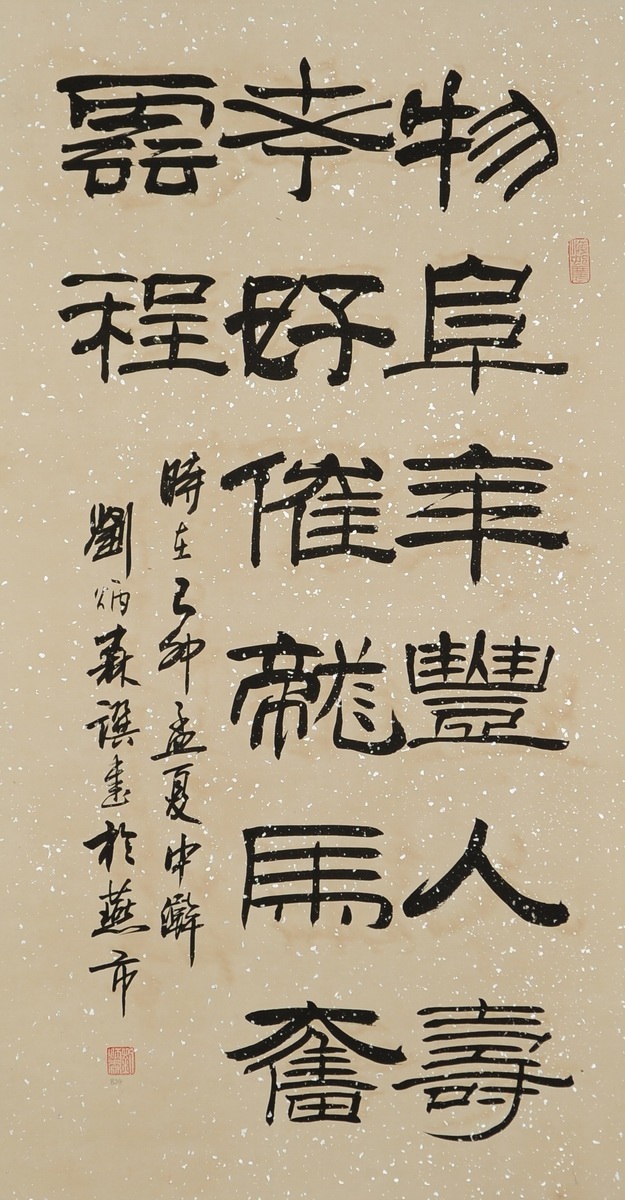 物阜年豐人壽
好催龍馬奮
雲程
時在己卯孟夏中澣
劉炳森譔書於燕市